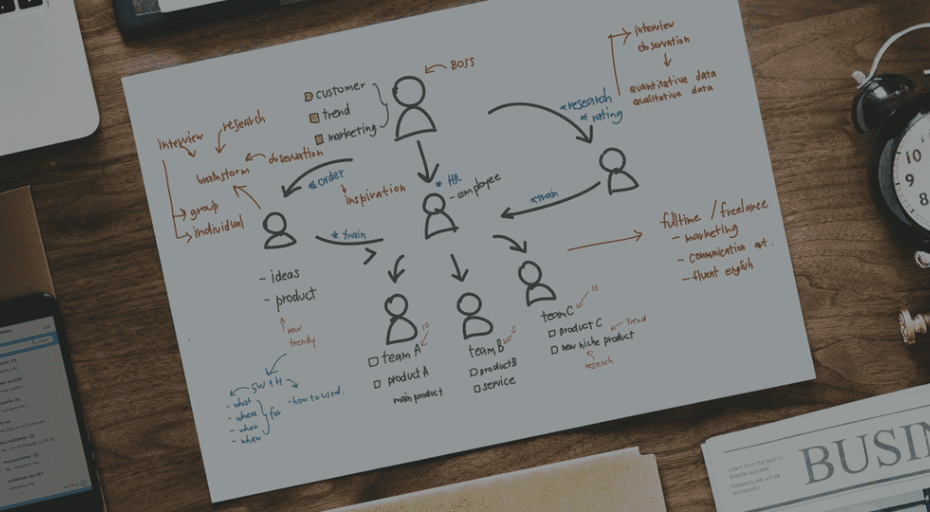 BOSS
customer
trend
marketing
interview
observation
quantitative data
qualitative data
*research
* rating
interview
research
brainstorm
observation
group
individual
*order
inspiration
* HR
- employee
* train
*train
- ideas
- product
new
trendy
5W+H
- what
- where
- when
for
- how to used.
team A
10
product A
main product
team B
5
product B
service
team C
10
product C
trend
new niche product
research
fulltime / freelance
- marketing
- communication
- fluent english
10
9
8
BUSIN